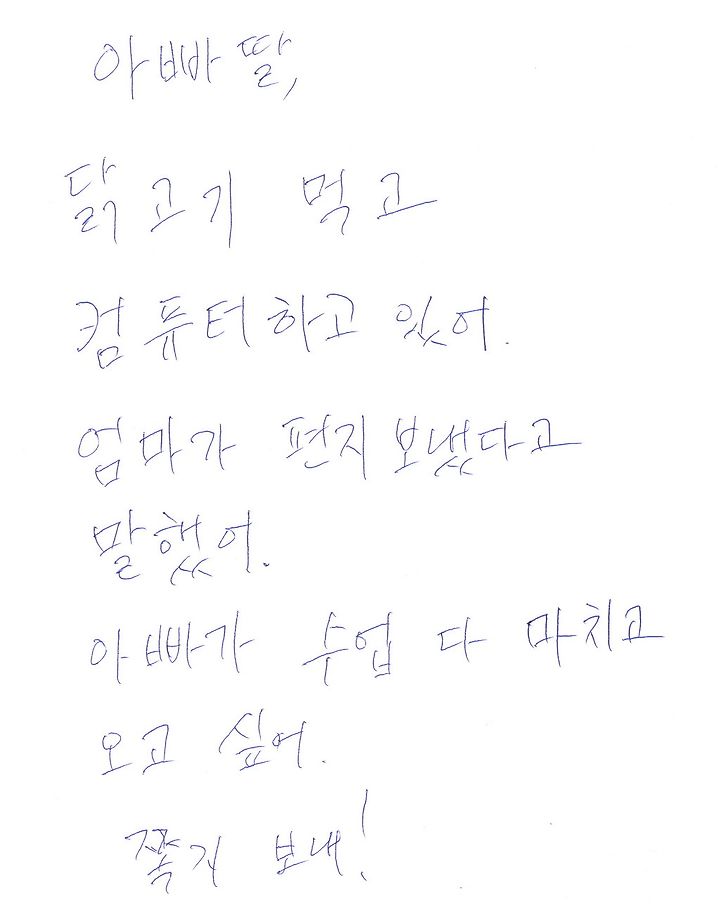 아빠 딸,
닭고기 먹고
컴퓨터하고 있어.
엄마가 편지 보냈다고
말했어.
아빠가 수업 다 마치고
오고 싶어.
쪽지 보내!